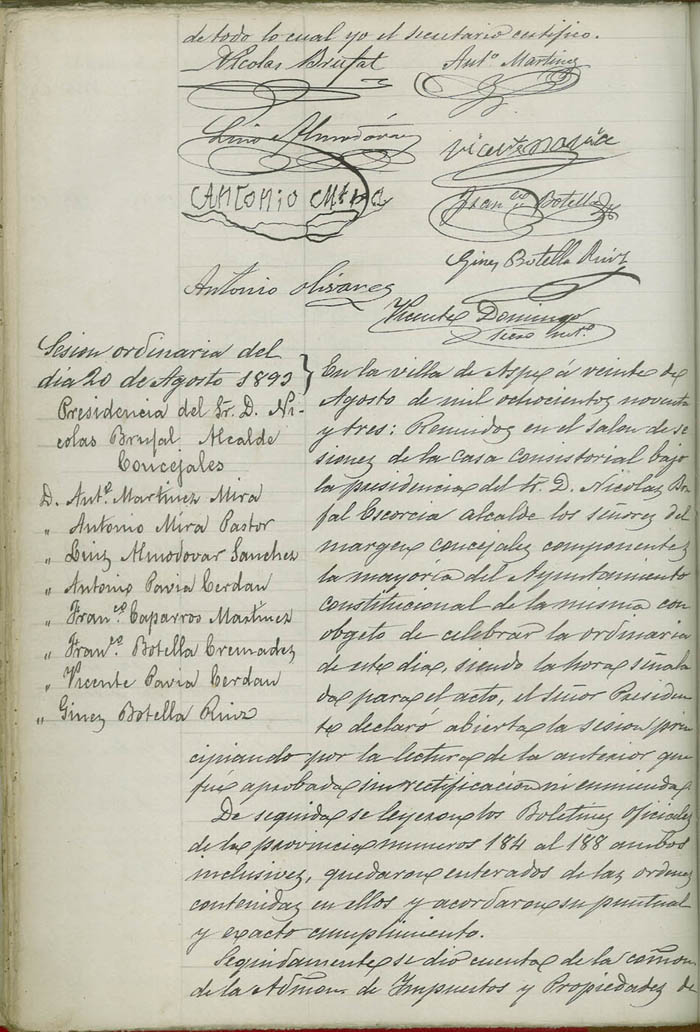 de todo lo cual yo el secretario certifico.
Nicolas Brufal Antº Martinez
Luis Almodóvar Vicente Pavía
ANTONIO MIRA Franco Botella
Gines Botella Ruiz
Antonio Olivares
Vicente Domingo
Sesion ordinaria del
dia 20 de Agosto 1893
Presidencia del Sr. D. Ni-
colas Brufal Alcalde
Concejales
D. Antº Martinez Mira
" Antonio Mira Pastor
" Luis Almodovar Sanchez
" Antonio Pavia Cerdan
" Franco Caparros Martinez
" Franco Botella Cremades
" Vicente Pavia Cerdan
" Gines Botella Ruiz
En la villa de Aspe á veinte de
Agosto de mil ochocientos noventa
y tres: Reunidos en el salon de se
siones de la casa consistorial bajo
la presidencia del Sr. D. Nicolas Bru
fal Escorcia alcalde los señores del
margen concejales componentes
la mayoría del Ayuntamiento
constitucional de la misma con
obgeto de celebrar la ordinaria
de este dia, siendo la hora señala
da para el acto, el señor Presiden
te declaró abierta la sesion prin
cipiando por la lectura de la anterior que
fué aprobada sin rectificacion ni enmienda.
De seguida se leyeron los Boletines Oficiales
de la provincia numeros 184 al 188 ambos
inclusives, quedaron enterados de las ordenes
contenidas en ellos y acordaron su puntual
y exacto cumplimiento.
Seguidamente se dio cuenta de la comon.
de la Admon. de Impuestos y Propiedades de